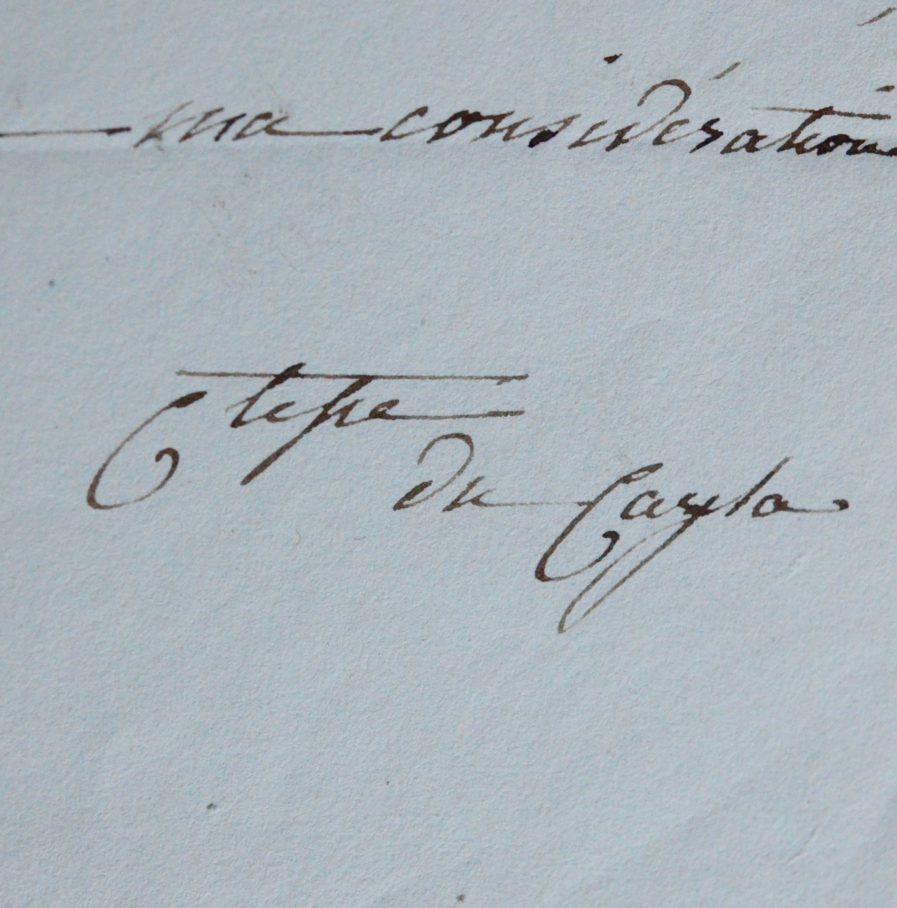 ma considération
Ctesse
du Cayla